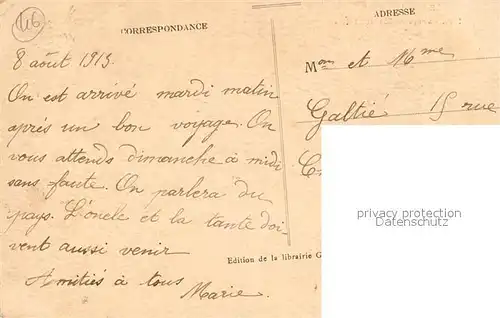 46
CORRESPONDANCE
ADRESSE
8 août 1913.
On est arrivé mardi matin
après un bon voyage. On
vous attends dimanche à midi
sans faute. On parlera du
pays. L'oncle et la tante doi
vent aussi venir
Amitiés à tous
Marie.
Mon et Mme
Galtié 15 rue
privacy protection
Datenschutz
Edition de la librairie G